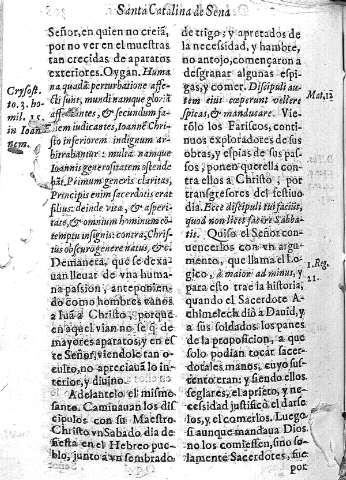 Santa Catalina de Sena
Señor, en quien no creîa,
por no ver en el muestras
tan crecidas de aparatos
exteriores. Oygan. Huma
na quadã perturbatione affe-
cti sunt, mundi namque gloriã
affectantes, & secundum fa-
ciem iudicantes, Ioannẽ Chri-
sto inferiorem indignum ar-
bitrabantur: multa namque
Ioannis generositatem ostende
bãt. Primum generis claritas,
Principis enim sacerdotis erat
filius: deinde vita, & asperi-
tate, & omnium hominum cõ-
temptu insignis: contra, Chris-
tus obscuro genere natus, &c.
Demanera, que se dexa-
uan lleuar de vna huma-
na passion, anteponien-
do como hombres vanos
a Iuã a Christo, porque
en aquel vian no se q̃ de
mayores aparatos, y en es-
te Señor, viendole tan o-
culto, no apreciauã lo in-
terior, y diuino.
Adelantelo el mismo
santo. Caminauan los dis
cipulos con su Maestro
Christo vn Sabado dia de
fiesta en el Hebreo pue-
blo, junto a vn sembrado
Crysost.
to. 3. ho-
mil. 15.
in Ioan
nem.
de trigo, y apretados de
la necessidad, y hambre,
no antojo, començaron a
desgranar algunas espi-
gas, y comer. Discipuli au-
tem eius cœperunt vellere
spicas, & manducare. Vie-
rõlo los Fariseos, conti-
nuos exploradores de sus
obras, y espias de sus pas-
sos, ponen querella con-
tra ellos a Christo, por
transgresores del festiuo
dia. Ecce discipuli tui faciũt,
quod non licet facere Sabba-
tis. Quiso el Señor con-
uencerlos con vn argu-
mento, que llama el Lo-
gico, à maior ad minus, y
para esto trae la historia,
quando el Sacerdote A-
chimelech diò a Dauid, y
a sus soldados los panes
de la proposicion, a que
solo podian tocar sacer-
dotales manos, cuyo sus-
tento eran: y siendo ellos
seglares, el aprieto, y ne-
cessidad justificò el darse
los, y el comerlos. Luego
si aunque mandaua Dios
no los comiessen, sino so-
lamente Sacerdotes, fue
por
Mat. 12
1. Reg.
21.